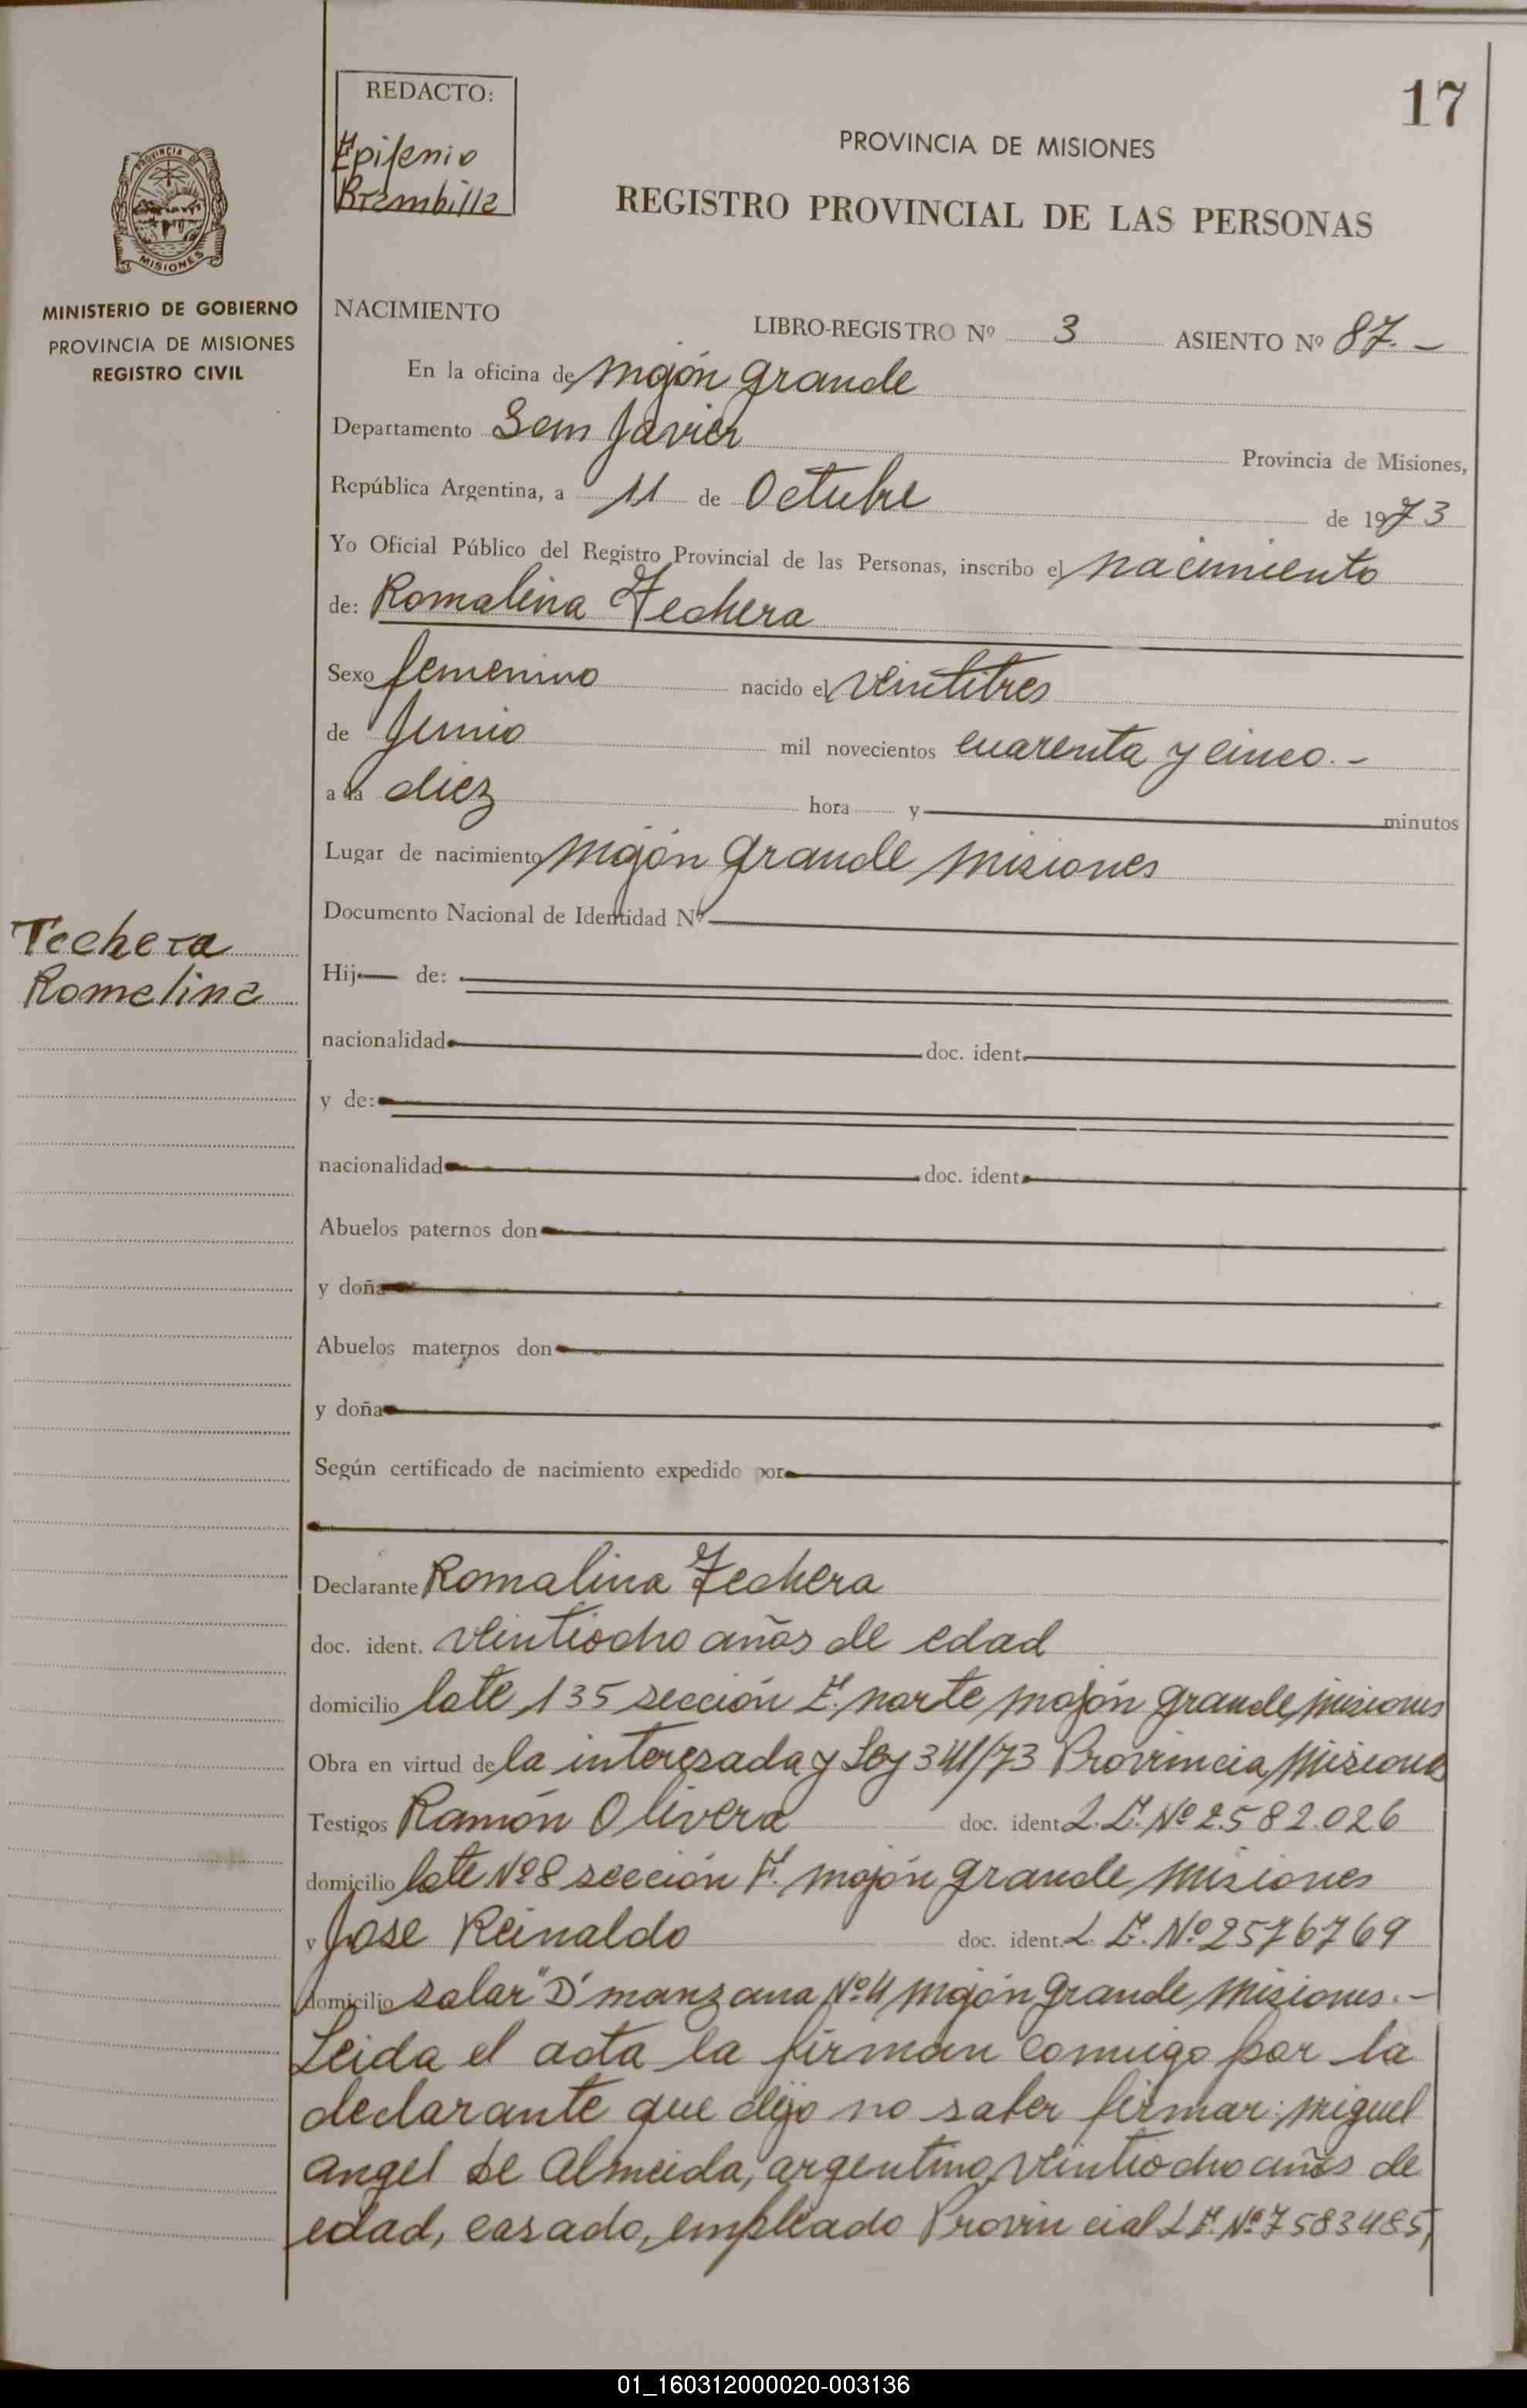 17
REDACTO:
Epifenio
Brambilla
PROVINCIA DE MISIONES
REGISTRO PROVINCIAL DE LAS PERSONAS
PROVINCIA DE
MISIONES
MINISTERIO DE GOBIERNO
PROVINCIA DE MISIONES
REGISTRO CIVIL
NACIMIENTO
LIBRO-REGISTRO Nº 3 ASIENTO Nº 87.-
En la oficina de Mojón Grande
Departamento San Javier Provincia de Misiones,
República Argentina, a 11 de Octubre de 1973
Yo Oficial Público del Registro Provincial de las Personas, inscribo el nacimiento
de: Romalina Techera
Sexo femenino nacido el veintitres
de Junio mil novecientos cuarenta y cinco.-
a la diez hora y minutos
Lugar de nacimiento Mojón Grande Misiones
Documento Nacional de Identidad Nº
Techera
Romelina
Hij de:
nacionalidad doc. ident.
y de:
nacionalidad doc. ident.
Abuelos paternos don
y doña
Abuelos maternos don
y doña
Según certificado de nacimiento expedido por
Declarante Romalina Techera
doc. ident. veintiocho años de edad
domicilio lote 135 sección norte Mojón Grande Misiones
Obra en virtud de la interesada y Ley 341/73 Provincia Misiones
Testigos Ramón Olivera doc. ident. L.E. Nº 2.582.026
domicilio lote Nº 8 sección Mojón Grande Misiones
y José Reinaldo doc. ident. L.E. Nº 2576769
domicilio solar "D" manzana Nº 4 Mojón Grande Misiones.-
Leida el acta la firman conmigo por la
declarante que dijo no saber firmar: Miguel
Angel De Almeida, argentino, veintiocho años de
edad, casado, empleado Provincial L E. Nº 7583485,
01_160312000020-003136